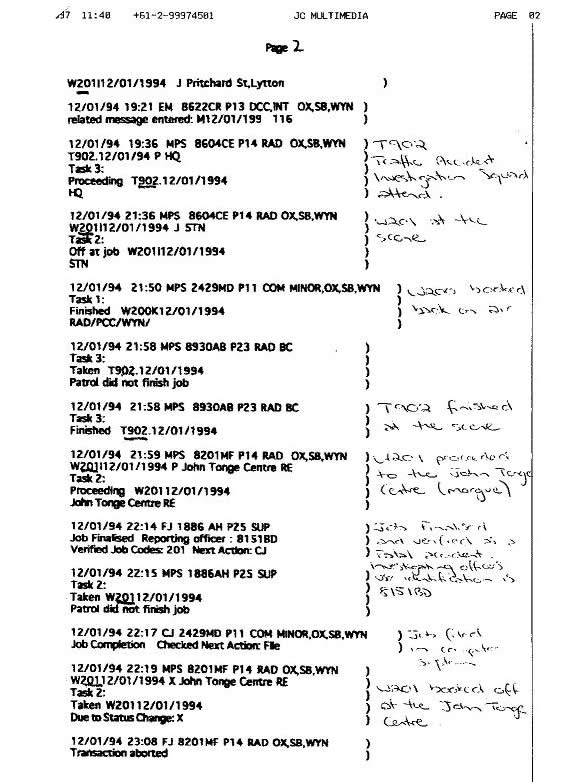 11:40 +61-2-99974501 JC MULTIMEDIA PAGE 02
Page 2
W201I12/01/1994 J Pritchard St,Lytton )
12/01/94 19:21 EM 8622CR P13 DCC,INT OX,SB,WYN )
related message entered: M12/01/199 116 )
12/01/94 19:36 MPS 8604CE P14 RAD OX,SB,WYN ) T902
T902.12/01/94 P HQ ) Traffic Accident
Task 3: ) Investigation Squad
Proceeding T902.12/01/1994 ) attend.
HQ )
12/01/94 21:36 MPS 8604CE P14 RAD OX,SB,WYN ) W201 at the
W201I12/01/1994 J STN ) scene
Task 2: )
Off at job W201I12/01/1994 )
STN )
12/01/94 21:50 MPS 2429MD P11 COM MINOR,OX,SB,WYN ) booked
Task 1: ) back on air
Finished W200K12/01/1994 )
RAD/PCC/WYN/ )
12/01/94 21:58 MPS 8930AB P23 RAD BC )
Task 3: )
Taken T902.12/01/1994 )
Patrol did not finish job )
12/01/94 21:58 MPS 8930AB P23 RAD BC ) T902 finished
Task 3: ) at the scene
Finished T902.12/01/1994 )
12/01/94 21:59 MPS 8201MF P14 RAD OX,SB,WYN ) W201 proceeded
W201I12/01/1994 P John Tonge Centre RE ) to the John Tonge
Task 2: ) Centre (morgue)
Proceeding W201I12/01/1994 )
John Tonge Centre RE )
12/01/94 22:14 FJ 1886 AH P25 SUP ) Job Finalised
Job Finalised Reporting officer : 8151BD ) and verified as a
Verified Job Codes: 201 Next Action: CJ ) Fatal accident.
Investigating officer's
12/01/94 22:15 MPS 1886AH P25 SUP ) identification is
Task 2: ) 8151BD
Taken W201I12/01/1994 )
Patrol did not finish job )
12/01/94 22:17 CJ 2429MD P11 COM MINOR,OX,SB,WYN ) Job filed
Job Completion Checked Next Action: File ) in computer
system
12/01/94 22:19 MPS 8201MF P14 RAD OX,SB,WYN )
W201I12/01/1994 X John Tonge Centre RE ) W201 booked off
Task 2: ) at the John Tonge
Taken W201I12/01/1994 ) Centre.
Due to Status Change: X )
12/01/94 23:08 FJ 8201MF P14 RAD OX,SB,WYN )
Transaction aborted )